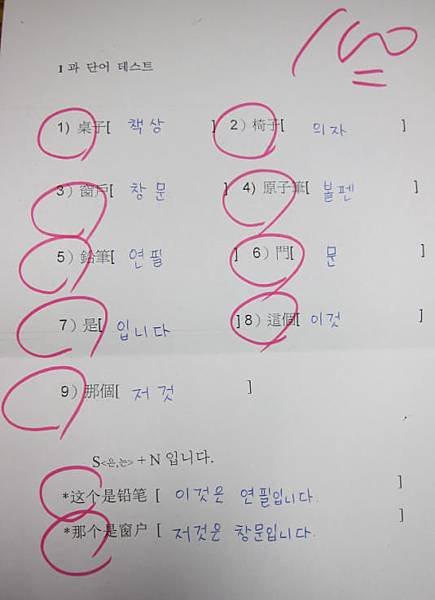 100
1과 단어 테스트
1) 桌子[ 책상 ] 2) 椅子[ 의자 ]
3) 窗戶[ 창문 ] 4) 原子筆[ 볼펜 ]
5) 鉛筆[ 연필 ] 6) 門[ 문 ]
7) 是[ 입니다 ] 8) 這個[ 이것 ]
9) 那個[ 저것 ]
S<은,는> + N 입니다.
*这个是铅笔 [ 이것은 연필입니다. ]
*那个是窗户 [ 저것은 창문입니다. ]